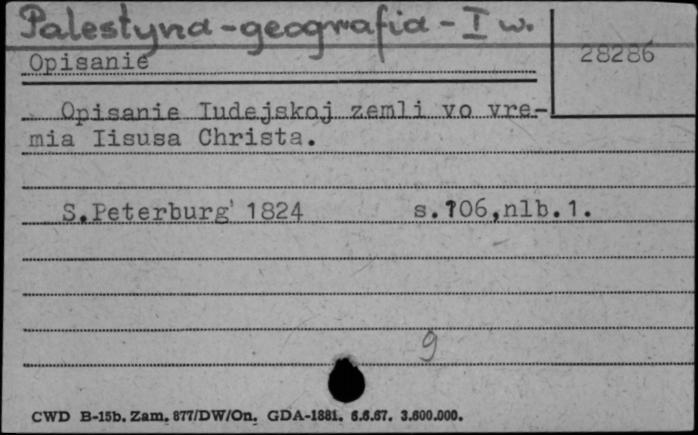 Palestyna-geografia - I w.
Opisanie
28286
Opisanie Iudejskoj zemli vo vre-
mia Iisusa Christa.
S.Peterburg' 1824 s.106,nlb.1.
9
CWD B-15b. Zam. 877/DW/On. GDA-1881. 6.6.67. 3.600.000.